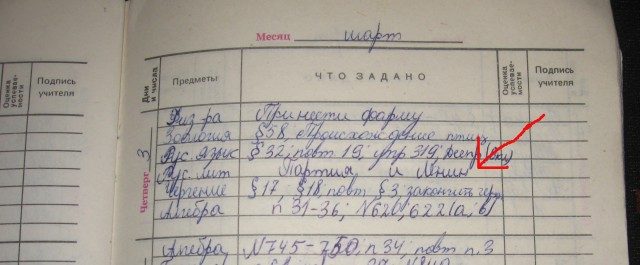 Месяц март
Оценка успевае-мости
Подпись учителя
Дни и числа
Предметы
ЧТО ЗАДАНО
Оценка успевае-мости
Подпись учителя
Физ-ра Принести форму
Зоология § 58, Происхождение птиц
Четверг 3
Рус. язык § 32; повт 19; упр 319;
Рус. лит Партия и Ленин
Черчение § 17 § 18, повт § 3, закончить черт
Алгебра п 31-36; N620, 622(а, б)
Алгебра N745-750, п 34, повт п. 3